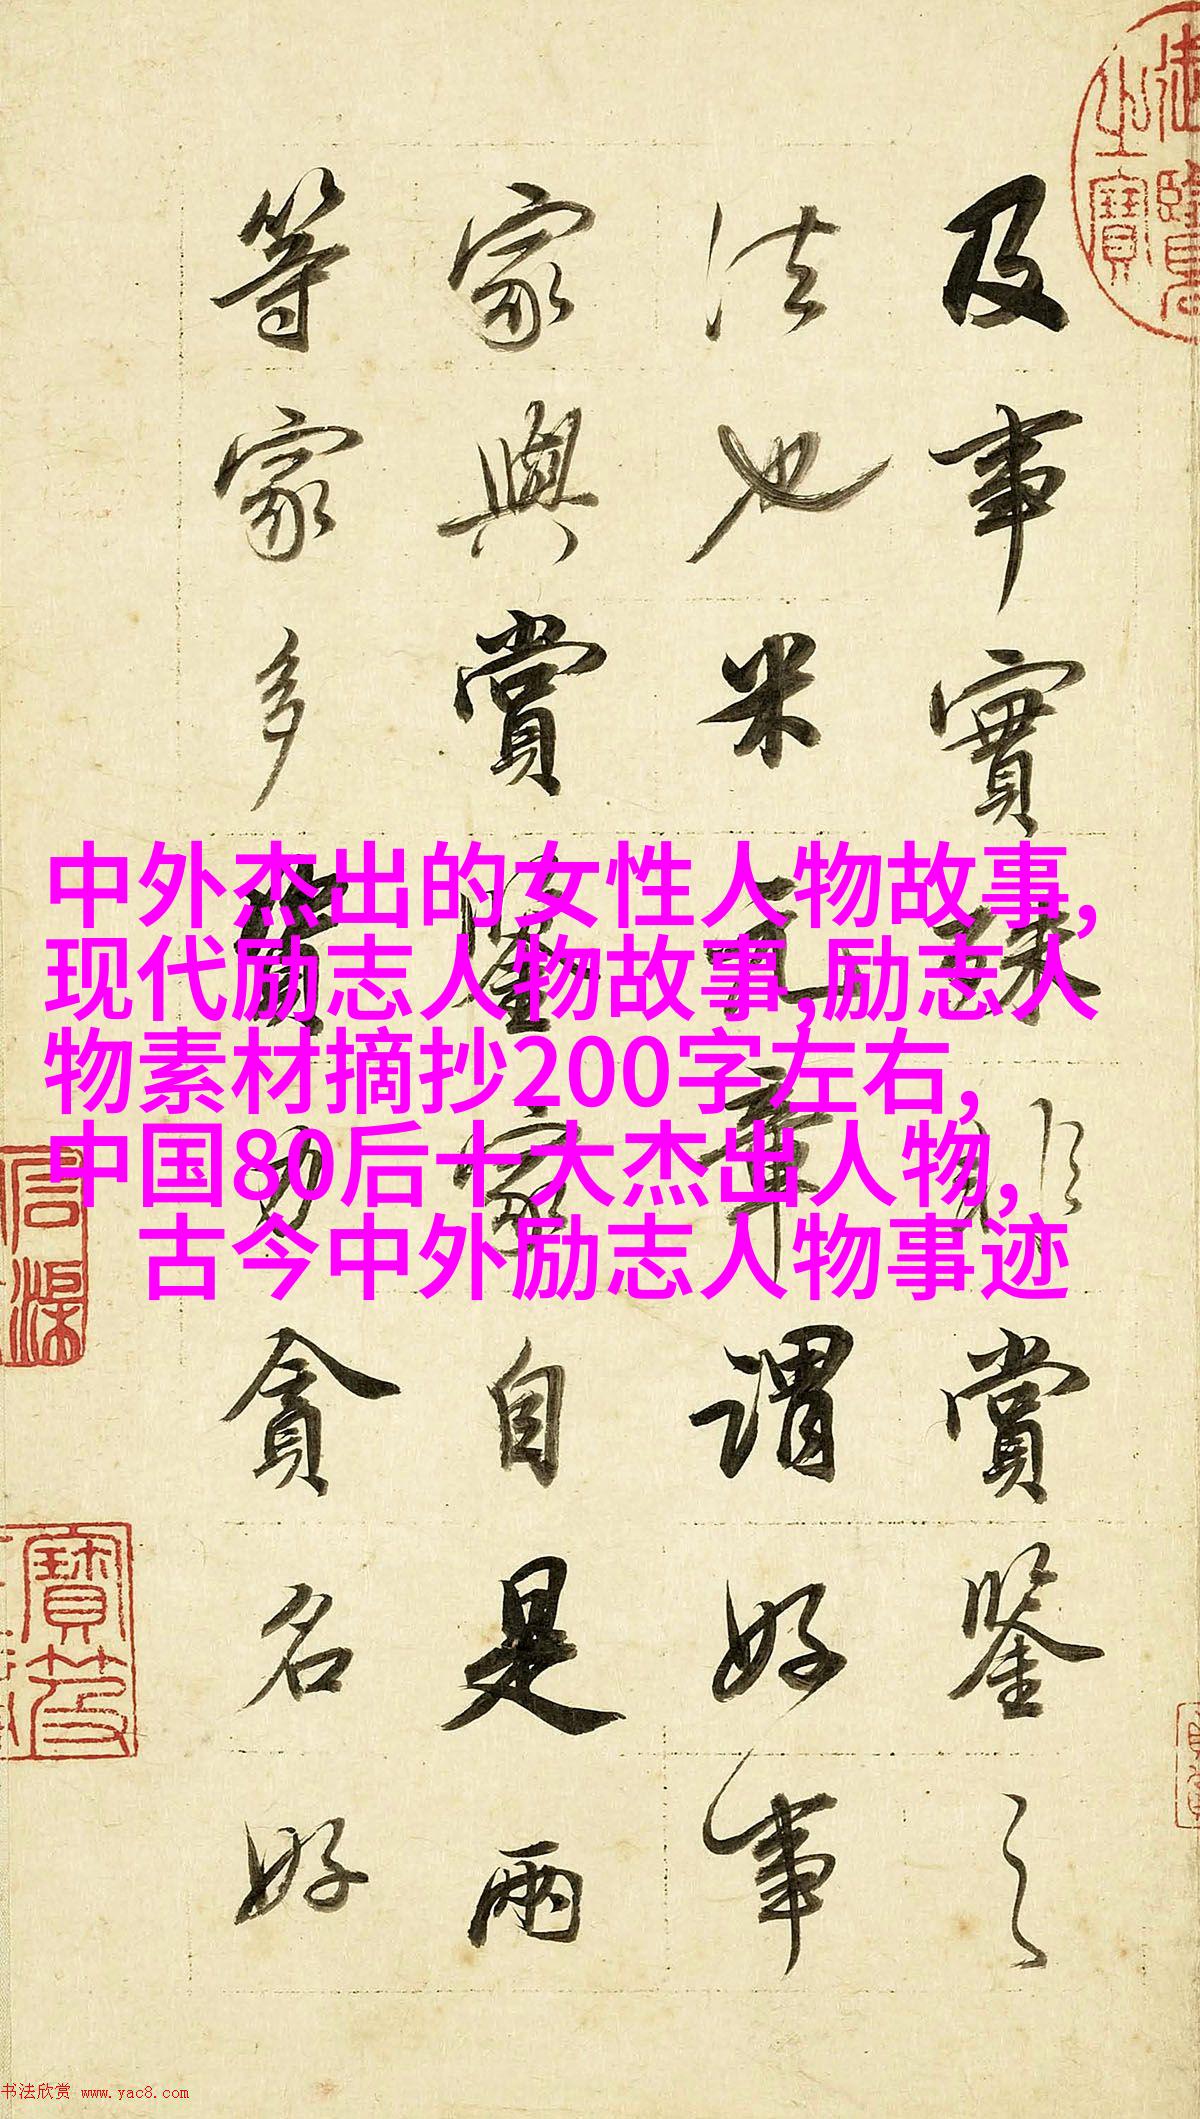 御覽
之寶
及事實殊非賞鑒之
法也米元章謂好事
家與賞鑒家自是兩
等家多資力貪名好
中外杰出的女性人物故事,
现代励志人物故事,励志人
物素材摘抄200字左右,
中国80后十大杰出人物,
古今中外励志人物事迹
书法欣赏 www.yac8.com